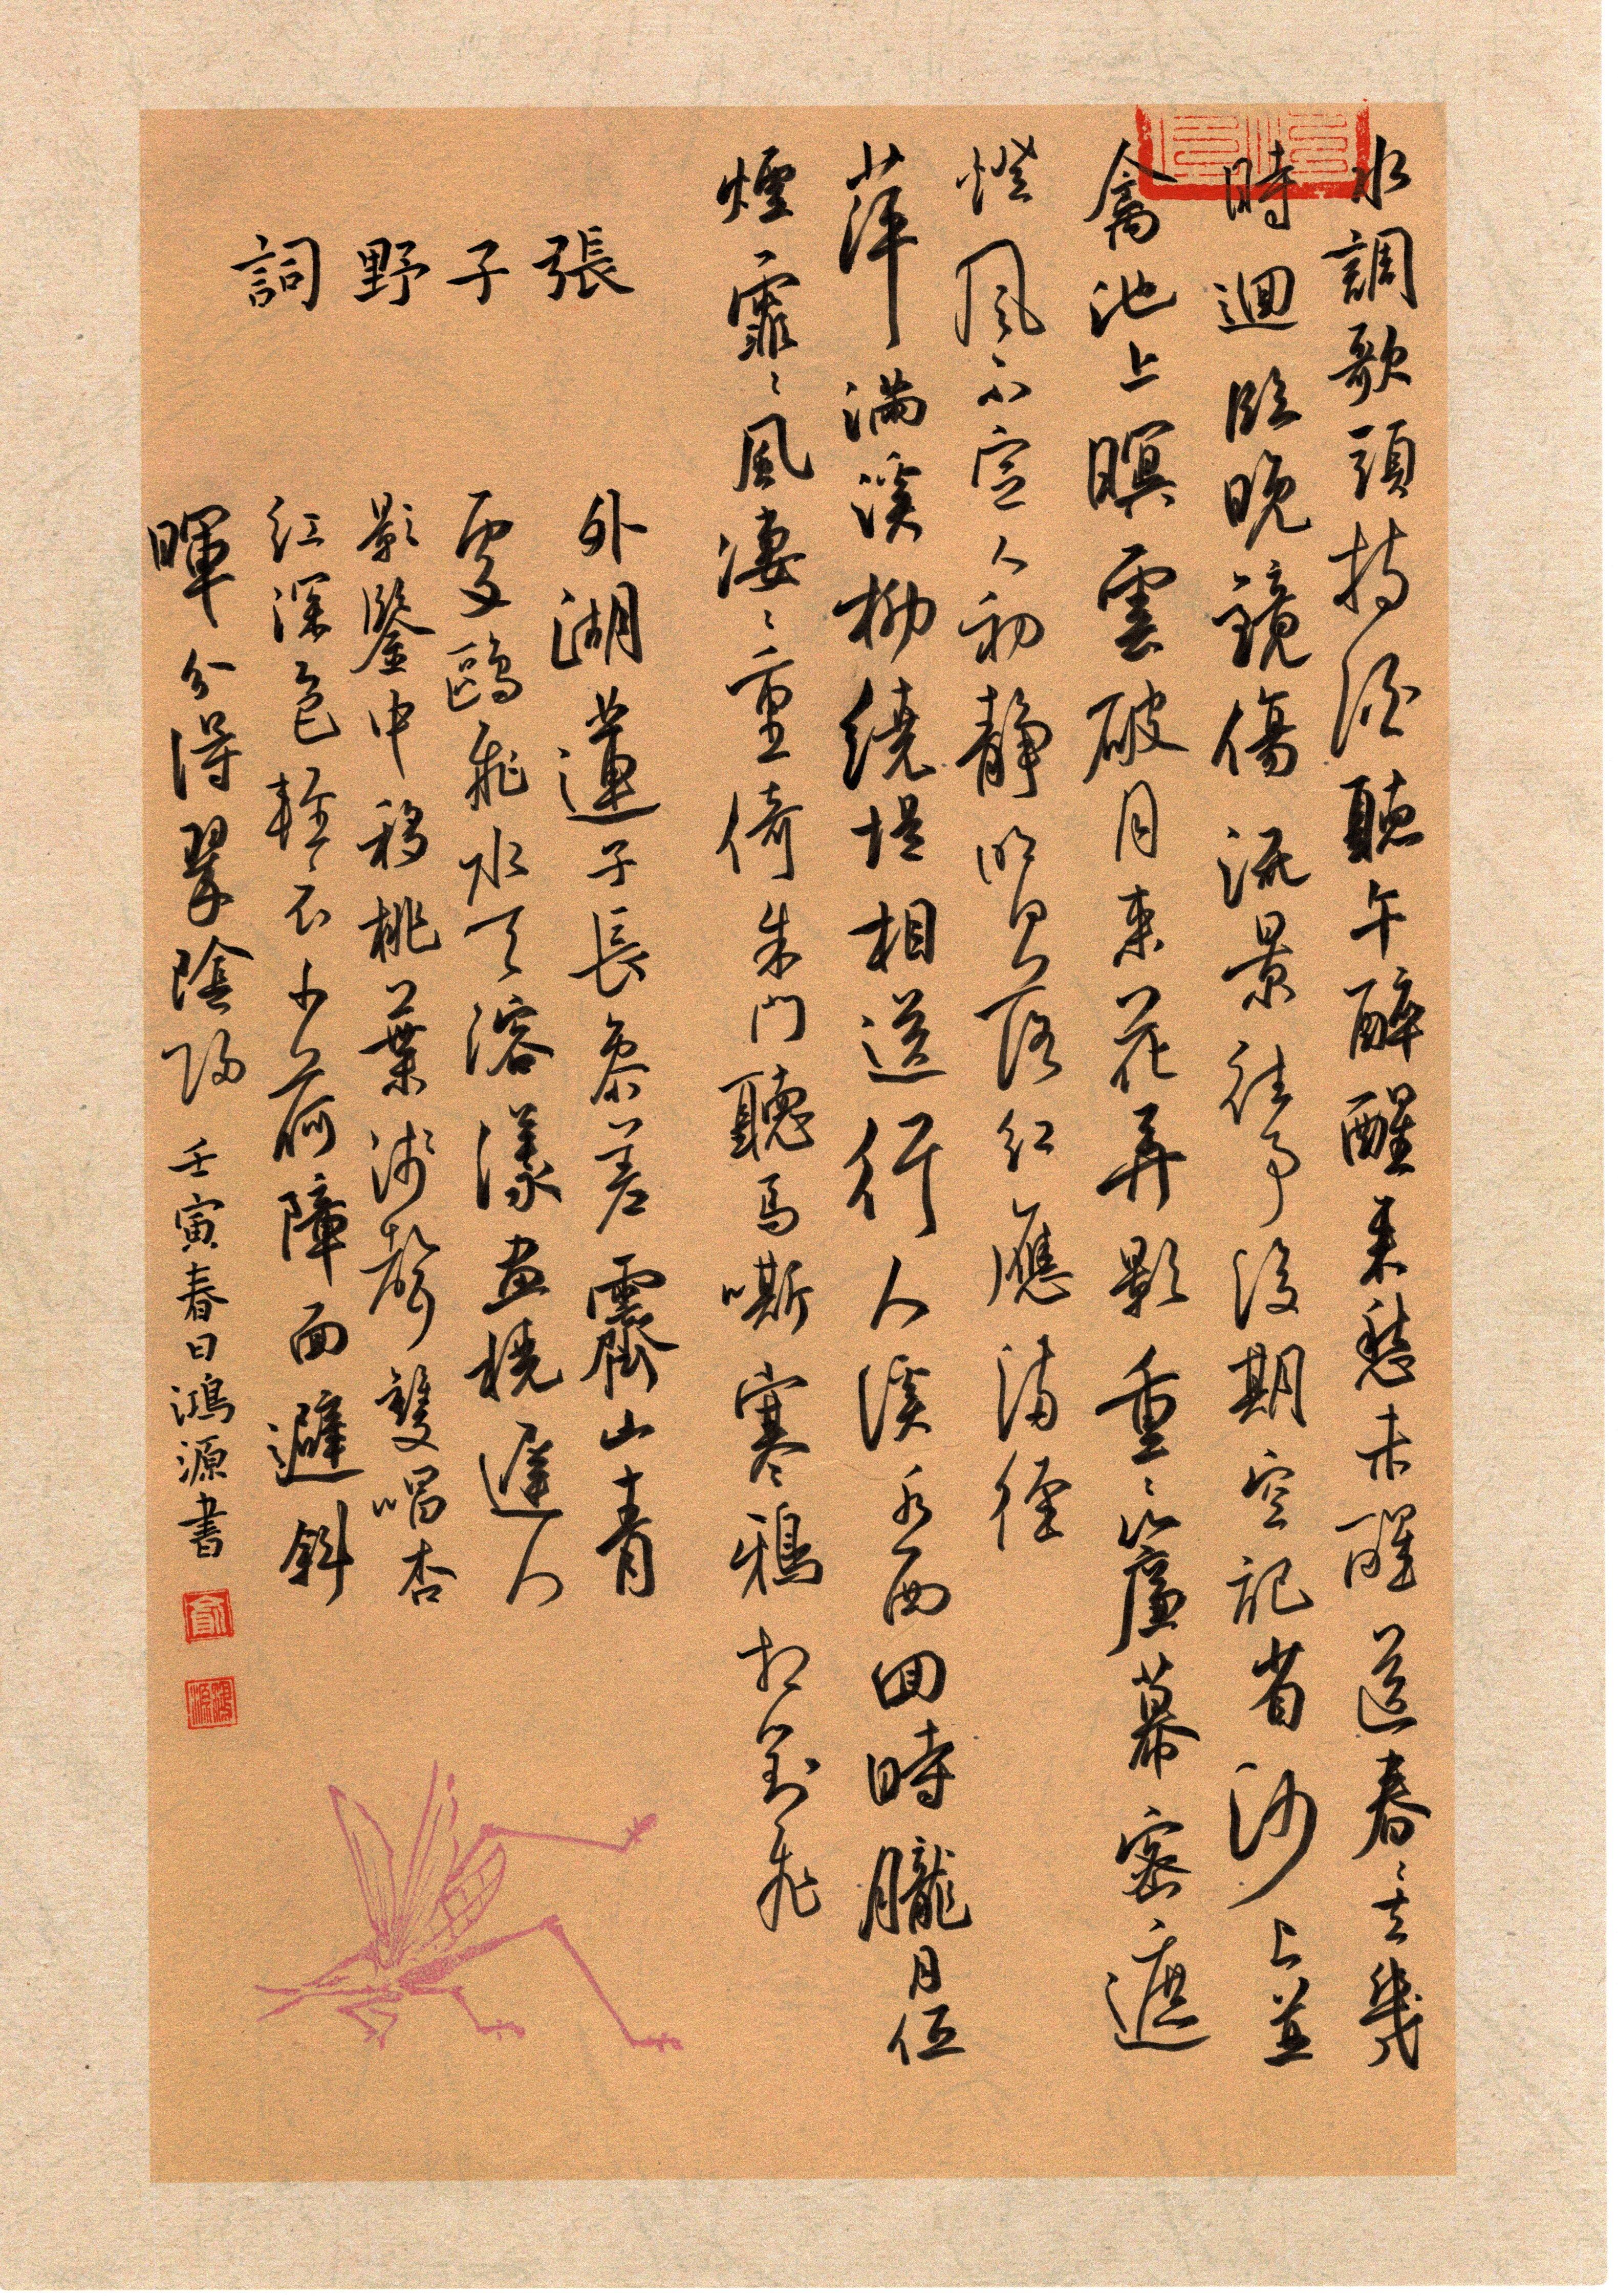 水調歌頭持酒聽午醉醒來愁未醒送春〻去幾
時迴臨晚鏡傷流景往事後期空記省沙上並
禽池上暝雲破月來花弄影重〻簾幕密遮
燈風不定人初靜明日落紅應滿徑
萍滿溪柳繞堤相送行人溪水西回時隴月低
煙霏〻風凄〻重倚朱門聽馬嘶寒鴉相對飛
張子野詞
外湖蓮子長參差霽山青
處鷗飛水天溶漾畫橈遲人
影鑒中移桃葉淺聲雙唱杏
紅深色輕衣小荷障面避斜
暉分得翠陰歸
壬寅春日鴻源書
鴻源